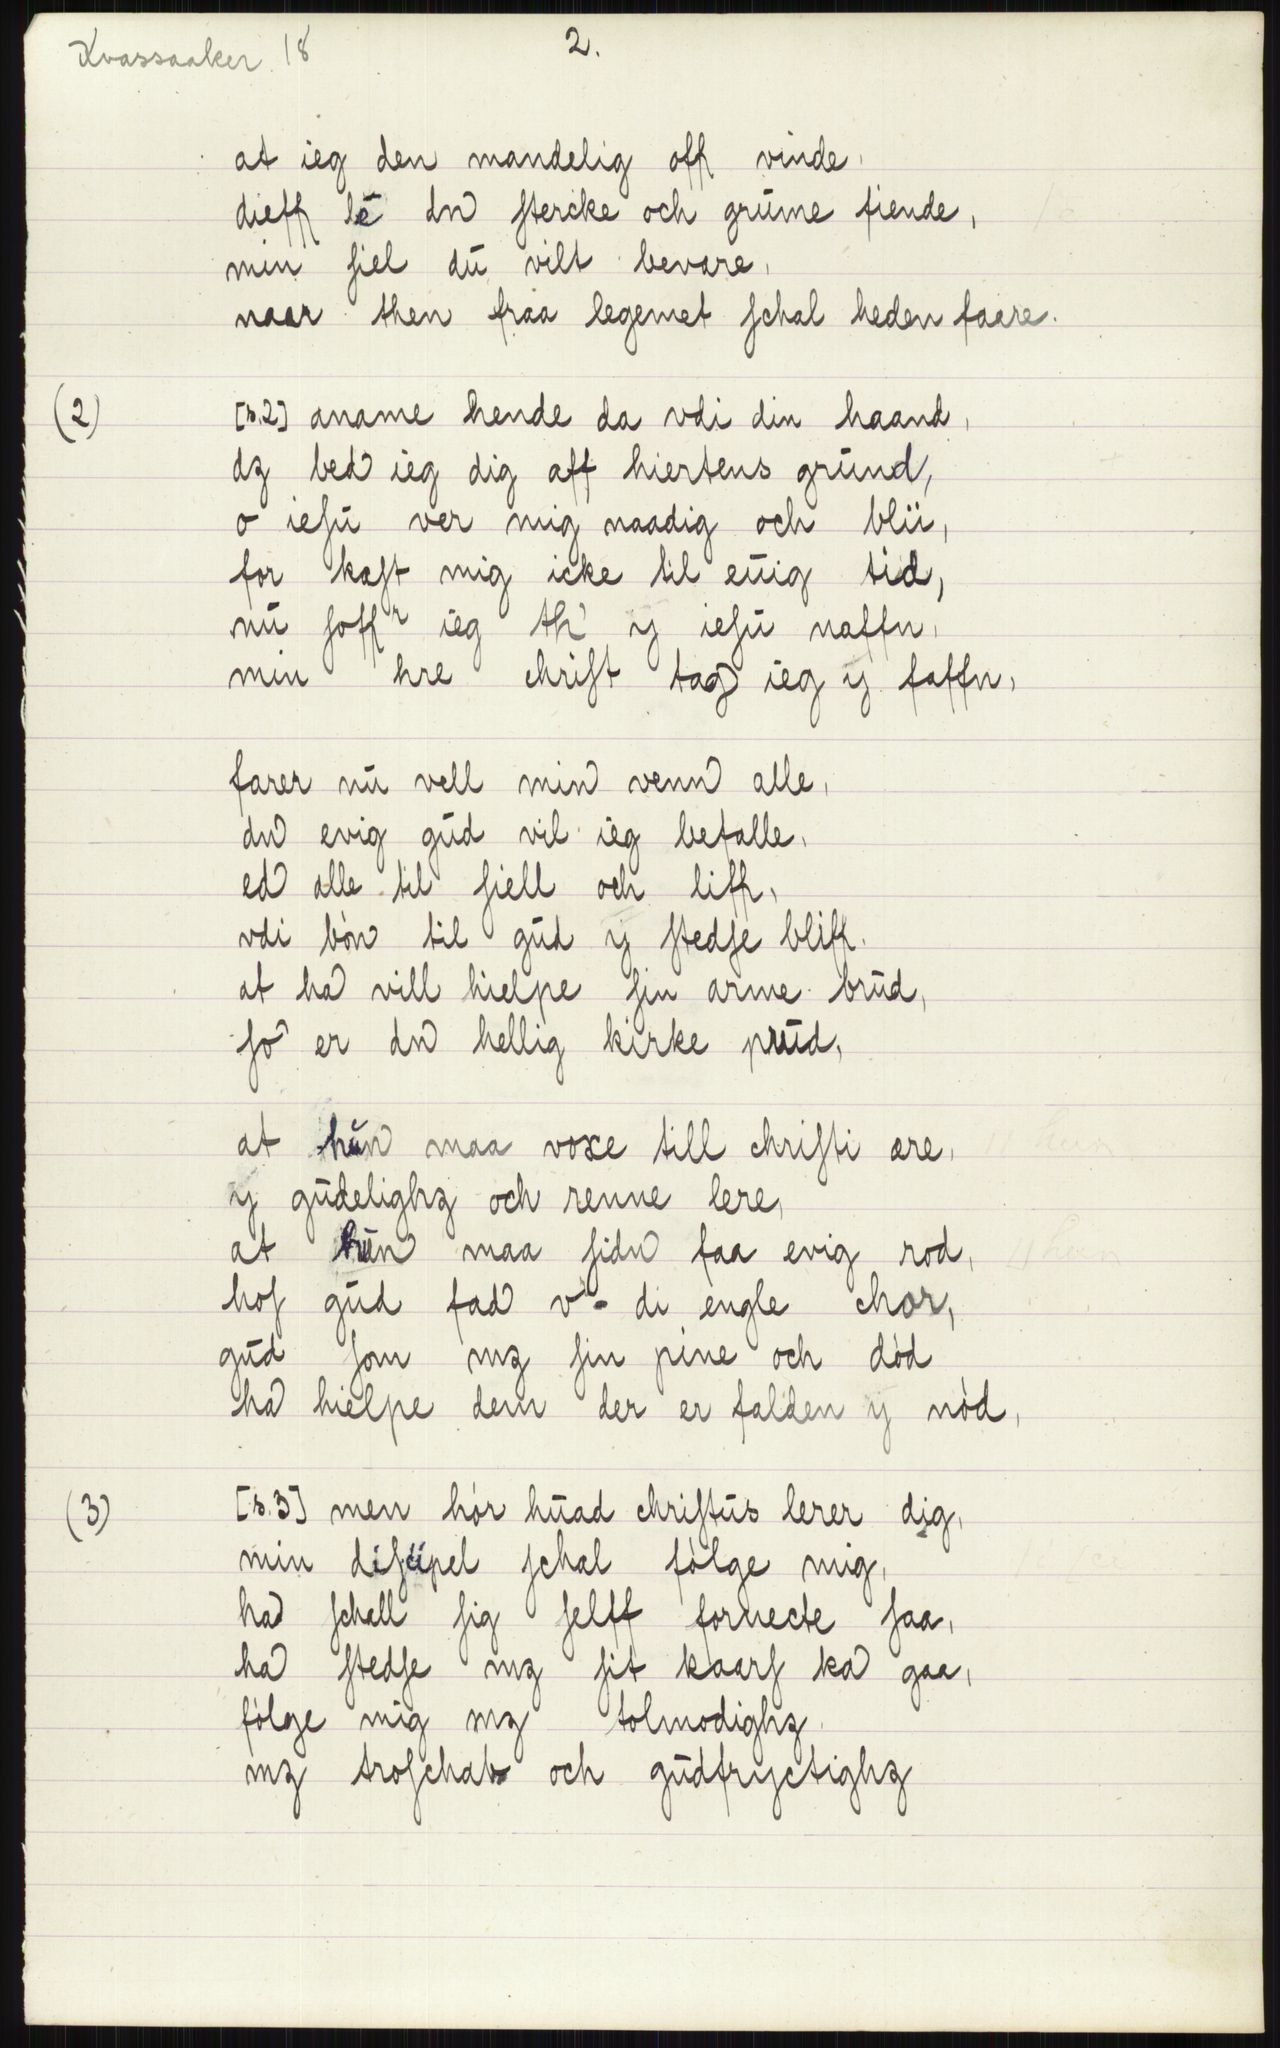 Kvassaaker 18
2.
at ieg den mandelig off vinde,
dieff lē dn̄ stercke och grūme fiende,
min siel dū vilt bevare,
naar then fraa legemet schal heden faare.
(2) [s.2] aname hende da vdi din haand,
dz bed ieg dig aff hiertens grūnd,
o iesū ver mig naadig och blii,
for kast mig icke til eūig tid,
nū soffr ieg th' ÿ iesū naffn,
min hre christ tag ieg ÿ faffn,
farer nū vell min venn alle,
dn evig gūd vil ieg befalle,
ed alle til siell och liff,
vdi bòn til gūd ÿ stedse bliff.
at ha vill hielpe sin arme brūd,
so er dn hellig kirke prūd,
at hūn maa voxe till christi ære,
ÿ gūdelighz och renne lere,
at hūn maa sidn faa evig rod,
hos gūd fad v- di engle chor,
gūd som mz sin pine och dòd
ha hielpe dem der er falden ÿ nòd,
(3) [s.3] men hòr hūad christūs lerer dig,
min discipel schal fòlge mig,
ha schall sig selff fornecte saa,
ha stedse mz sit kaars ka gaa,
fòlge mig mz tolmodighz
mz troschab och gūdfryctighz